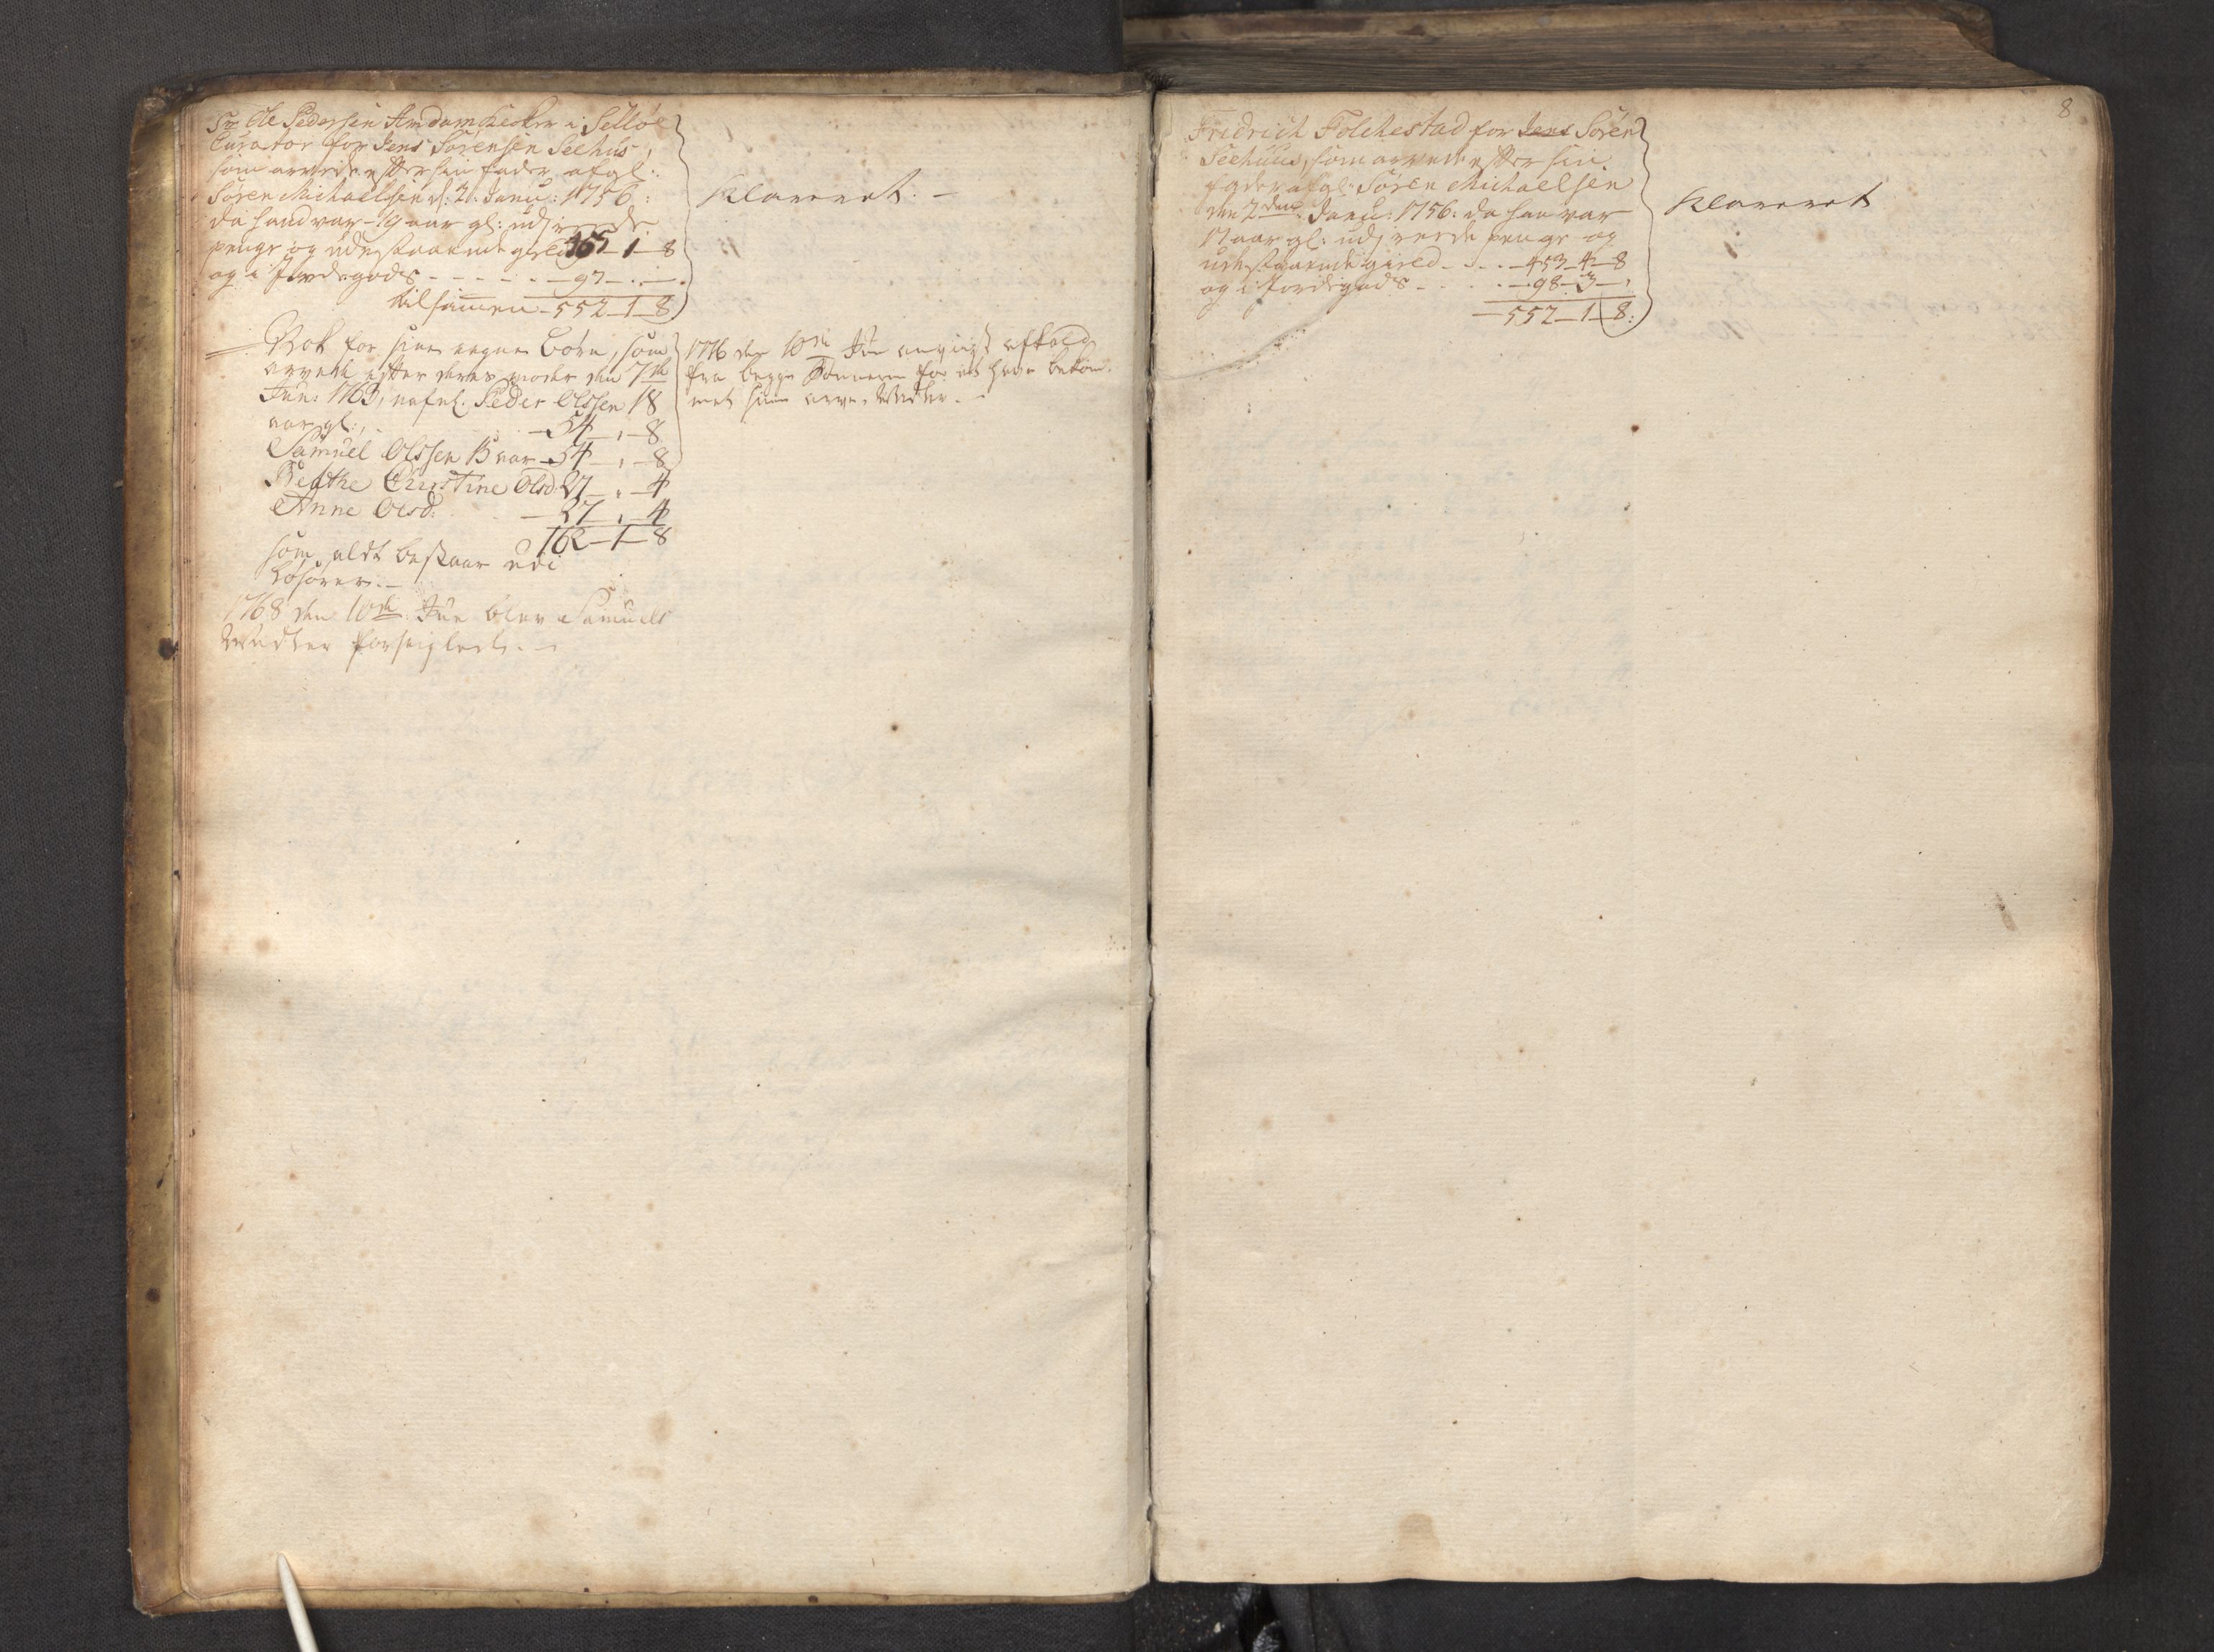 Sr Ole Pedersen Amdam Kicker i Selløe
Curator for Jens Sörensen Seehus,
som arvede efter sin fader afgl:
Sören Michaelsen d: 2. Janu: 1756:
da hand var 19 aar gl: udj rede
penge og udestaaende gield 455-1-8
og i Jordegods - - - - - 97-.-.
tilsamen - 552-1-8
Nok for sine egne Börn, som
arvede efter deres moder den 7de
Jun: 1763, nafnl. Peder Olssen 18
aar gl:, - 54-,-8
Samuel Olssen 15 aar - 54-,-8
Berthe Christine Olsd: 27-,-4
Anne Olsd: - 27-,-4
162-1-8
som aldt bestaar udi
Lösöre.-
1768 den 10de Jun blev Samuels
Midler forseiglede.-
Klareret.-
1776 den 10de Jun anviist afkald
fra begge Sönnerne for at have bekom-
met sine arve Midler.-
8
Fridrich Folchestad for Jens Sören
Seehuus, som arvede efter sin
fader afgl: Sören Michaelsen
den 2den Janu: 1756: da han var
17 aar gl: udj reede penge og
udestaaende gield - . - . -453-4-8
og i Jordegods - . . -98-3-,
-552-1-8:
Klareret